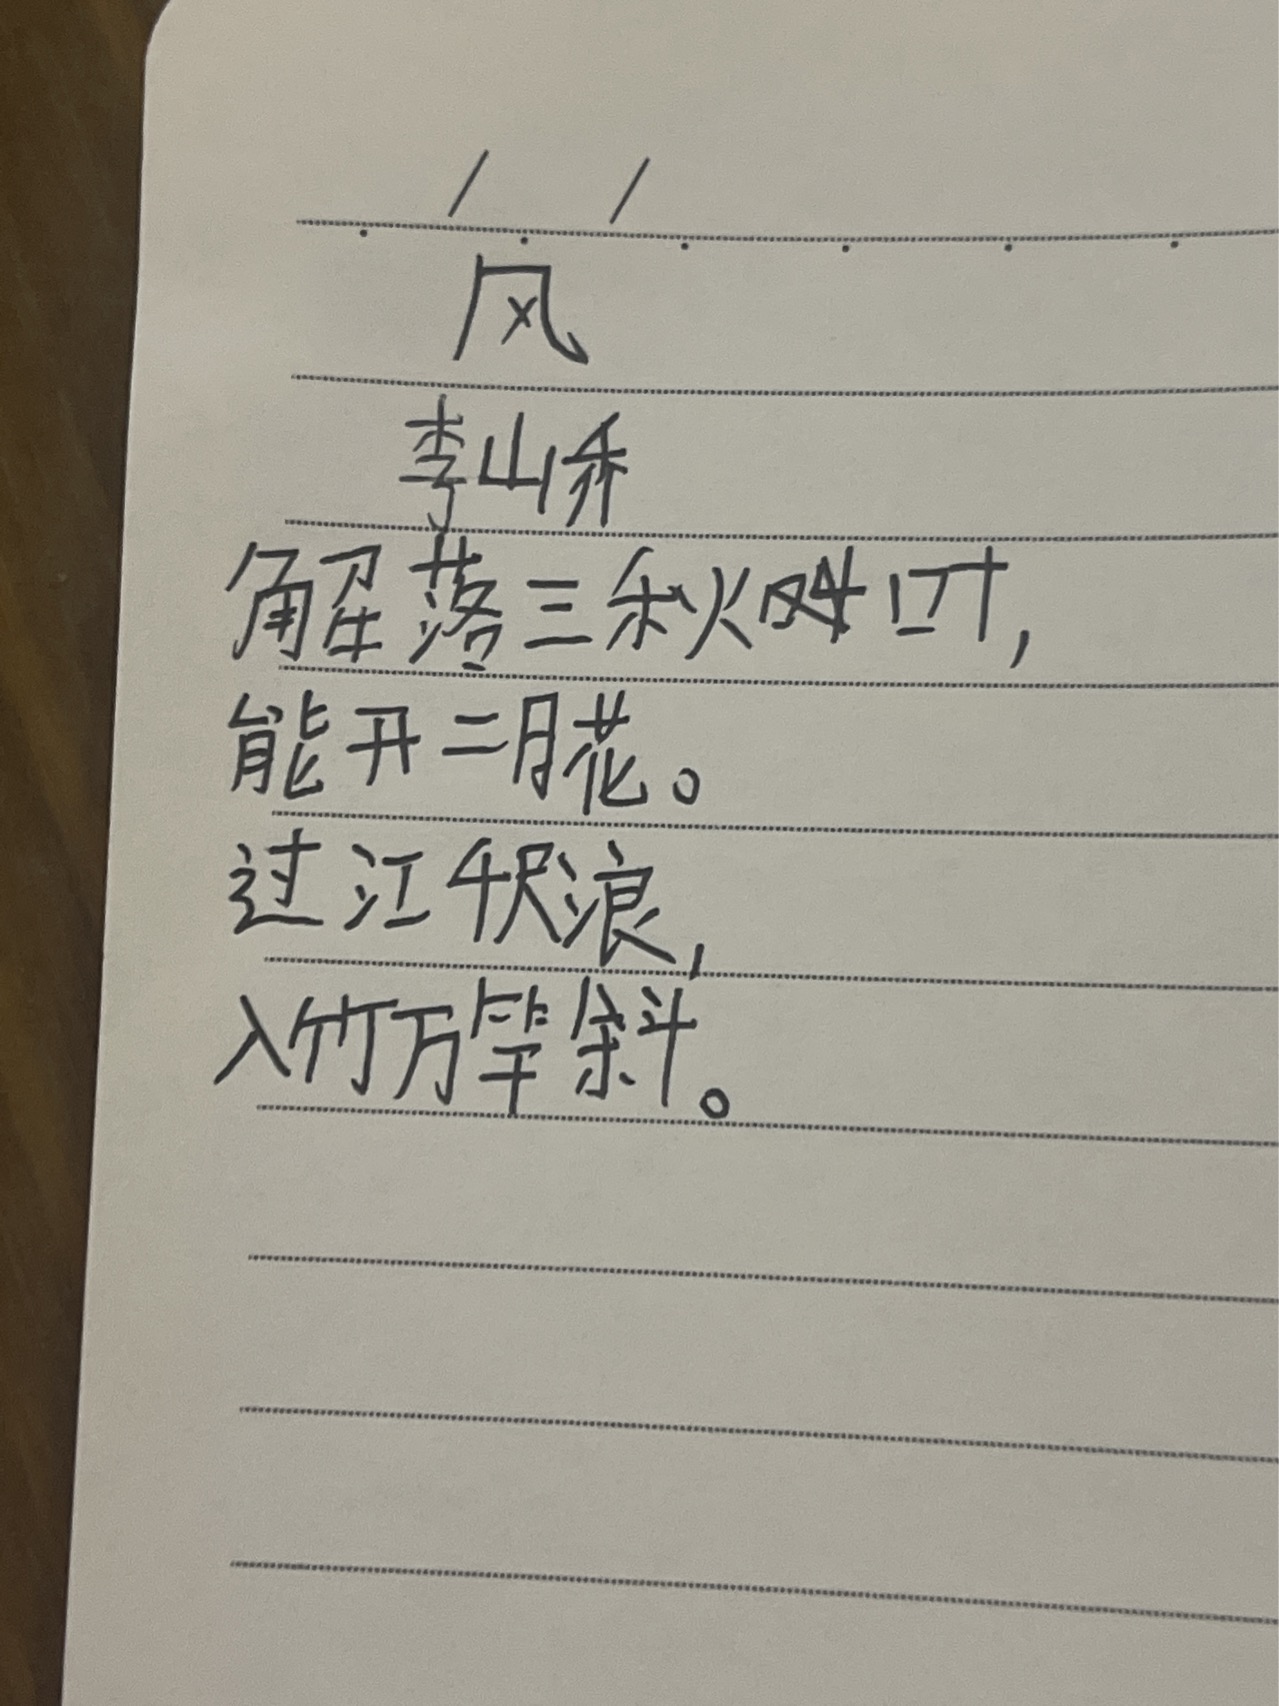 / /
风
李峤
解落三秋叶,
能开二月花。
过江千尺浪,
入竹万竿斜。